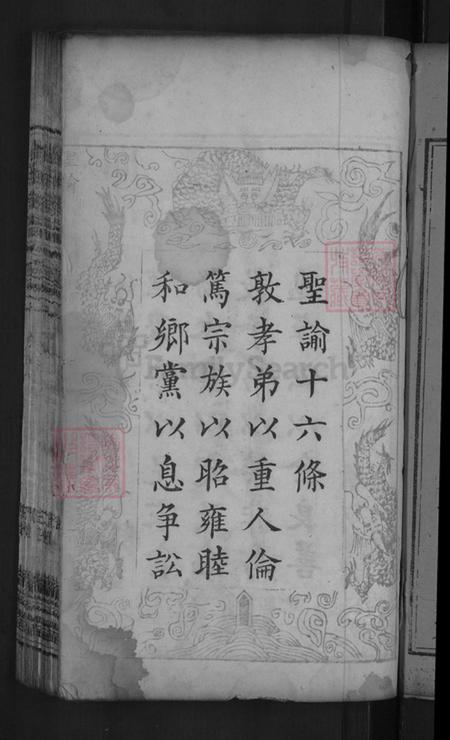 聖諭十六條
敦孝弟以重人倫
篤宗族以昭雍睦
和鄉黨以息争訟
聖諭
FamilySearch